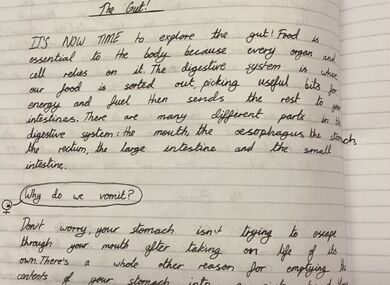 The Gut!
IT'S NOW TIME to explore the gut! Food is
essential to the body because every organ and
cell relies on it. The digestive system is where
our food is sorted out, picking useful bits for
energy and fuel then sends the rest to your
intestines. There are many different parts in the
digestive system: the mouth, the oesophagus, the stomach,
the rectum, the large intestine and the small
intestine.
Why do we vomit?
Don't worry, your stomach isn't trying to escape
through your mouth after taking on life of its
own. There's a whole other reason for emptying the
contents of your stomach